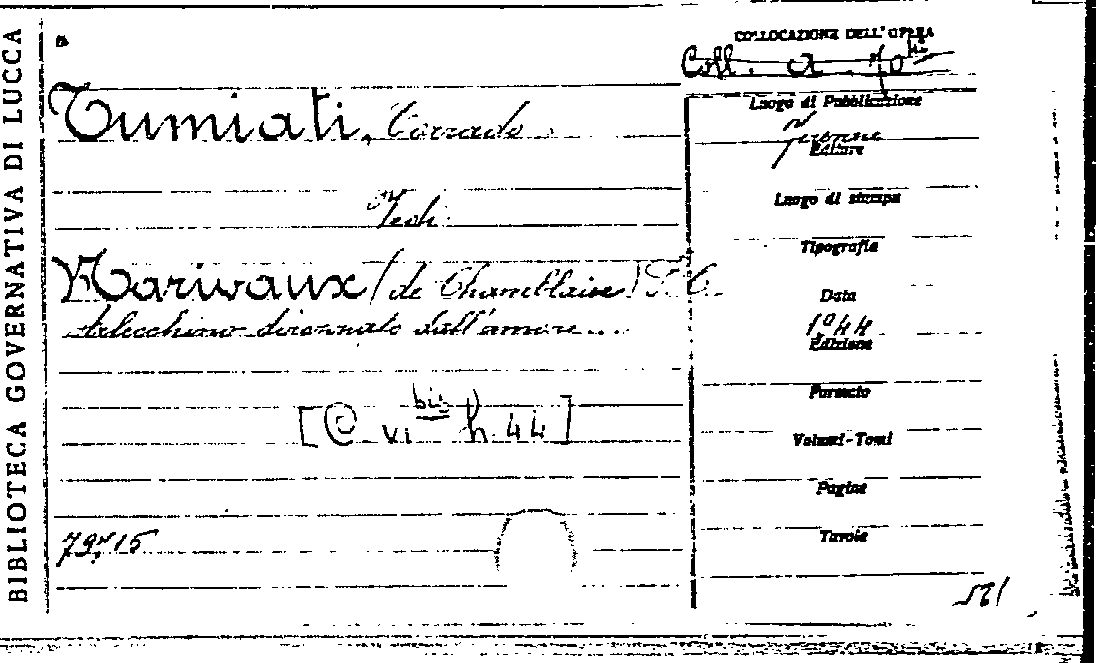 BIBLIOTECA GOVERNATIVA DI LUCCA
COLLOCAZIONE DELL'OPERA
Coll. a. 70 bis
Tumiati, Corrado
Vedi:
Marivaux (de Chamblain) P. C.
Arlecchino dirozzato dall'amore...
[C vi bis h 44]
79715
Luogo di Pubblicazione
Firenze
Editore
Luogo di stampa
Tipografia
Data
1944
Edizione
Formato
Volumi-Tomi
Pagine
Tavole